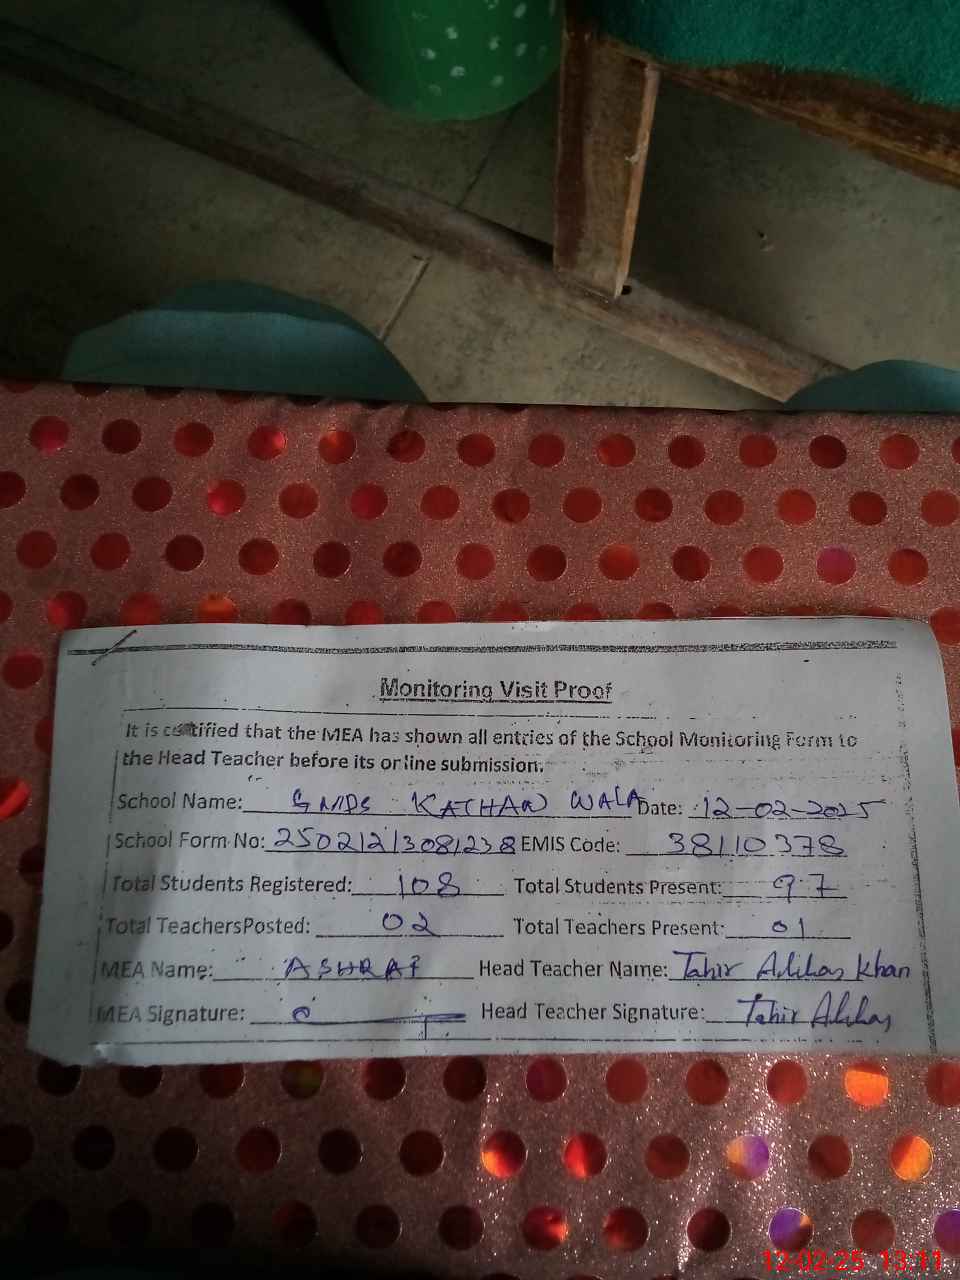 Monitoring Visit Proof
It is certified that the MEA has shown all entries of the School Monitoring Form to
the Head Teacher before its online submission.
School Name: GMPS KACHAN WALA Date: 12-02-2025
School Form No: 25021213081238 EMIS Code: 38110378
Total Students Registered: 108 Total Students Present: 97
Total TeachersPosted: 02 Total Teachers Present: 01
MEA Name: ASHRAF Head Teacher Name: Tahir Khan
MEA Signature: Head Teacher Signature: Tahir
12-02-25 13:11